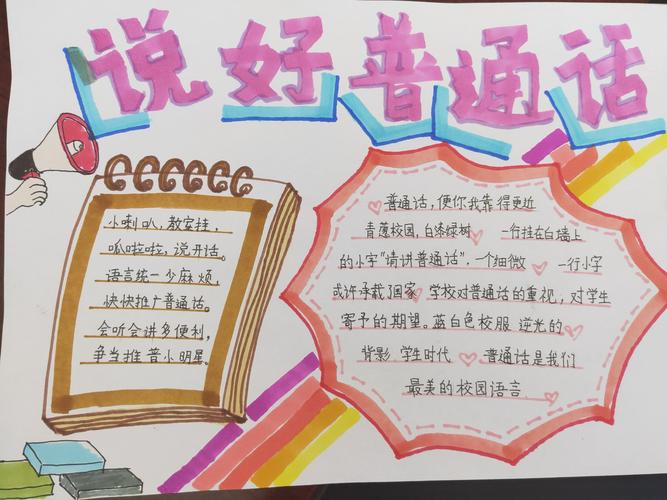 说好普通话
小喇叭,教室挂,
呱啦啦,说开话。
语言统一少麻烦,
快快推广普通话。
会听会讲多便利,
争当推普小明星。
普通话,使你我靠得更近
青葱校园,白杨绿树 一行挂在白墙上
的小字“请讲普通话”,一个细微 一行小字
或许承载了国家 学校对普通话的重视,对学生
寄予的期望。蓝白色校服 逆光的
背影 学生时代 普通话是我们
最美的校园语言